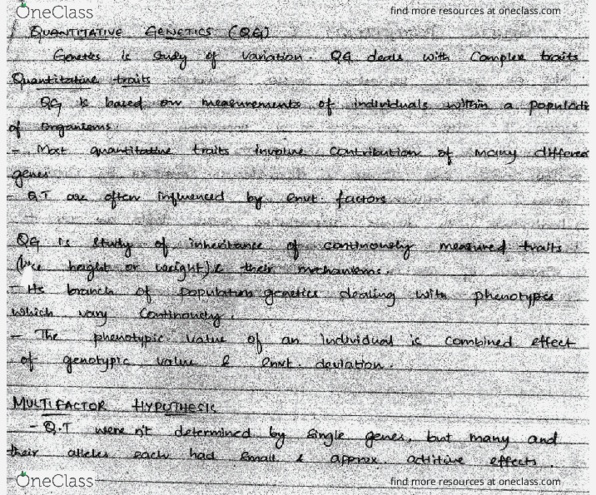 OneClass find more resources at oneclass.com
QUANTITATIVE GENETICS (QG)
Genetics is study of variation. QG deals with complex traits
Quantitative traits
QG is based on measurements of individuals within a populati
of organisms.
- Most quantitative traits involve contribution of many differen
genes
- QT are often influenced by envt factors
QG is study of inheritance of continously measured traits
(like height or weight) & their mechanisms.
- Its branch of population genetics dealing with phenotypes
which vary continously.
- The phenotypic value of an individual is combined effect
of genotypic value & envt. deviation.
MULTIFACTOR HYPOTHESIS
- Q.T were n't determined by single genes, but many and
their alleles each had small & approx. additive effects.
OneClass find more resources at oneclass.com